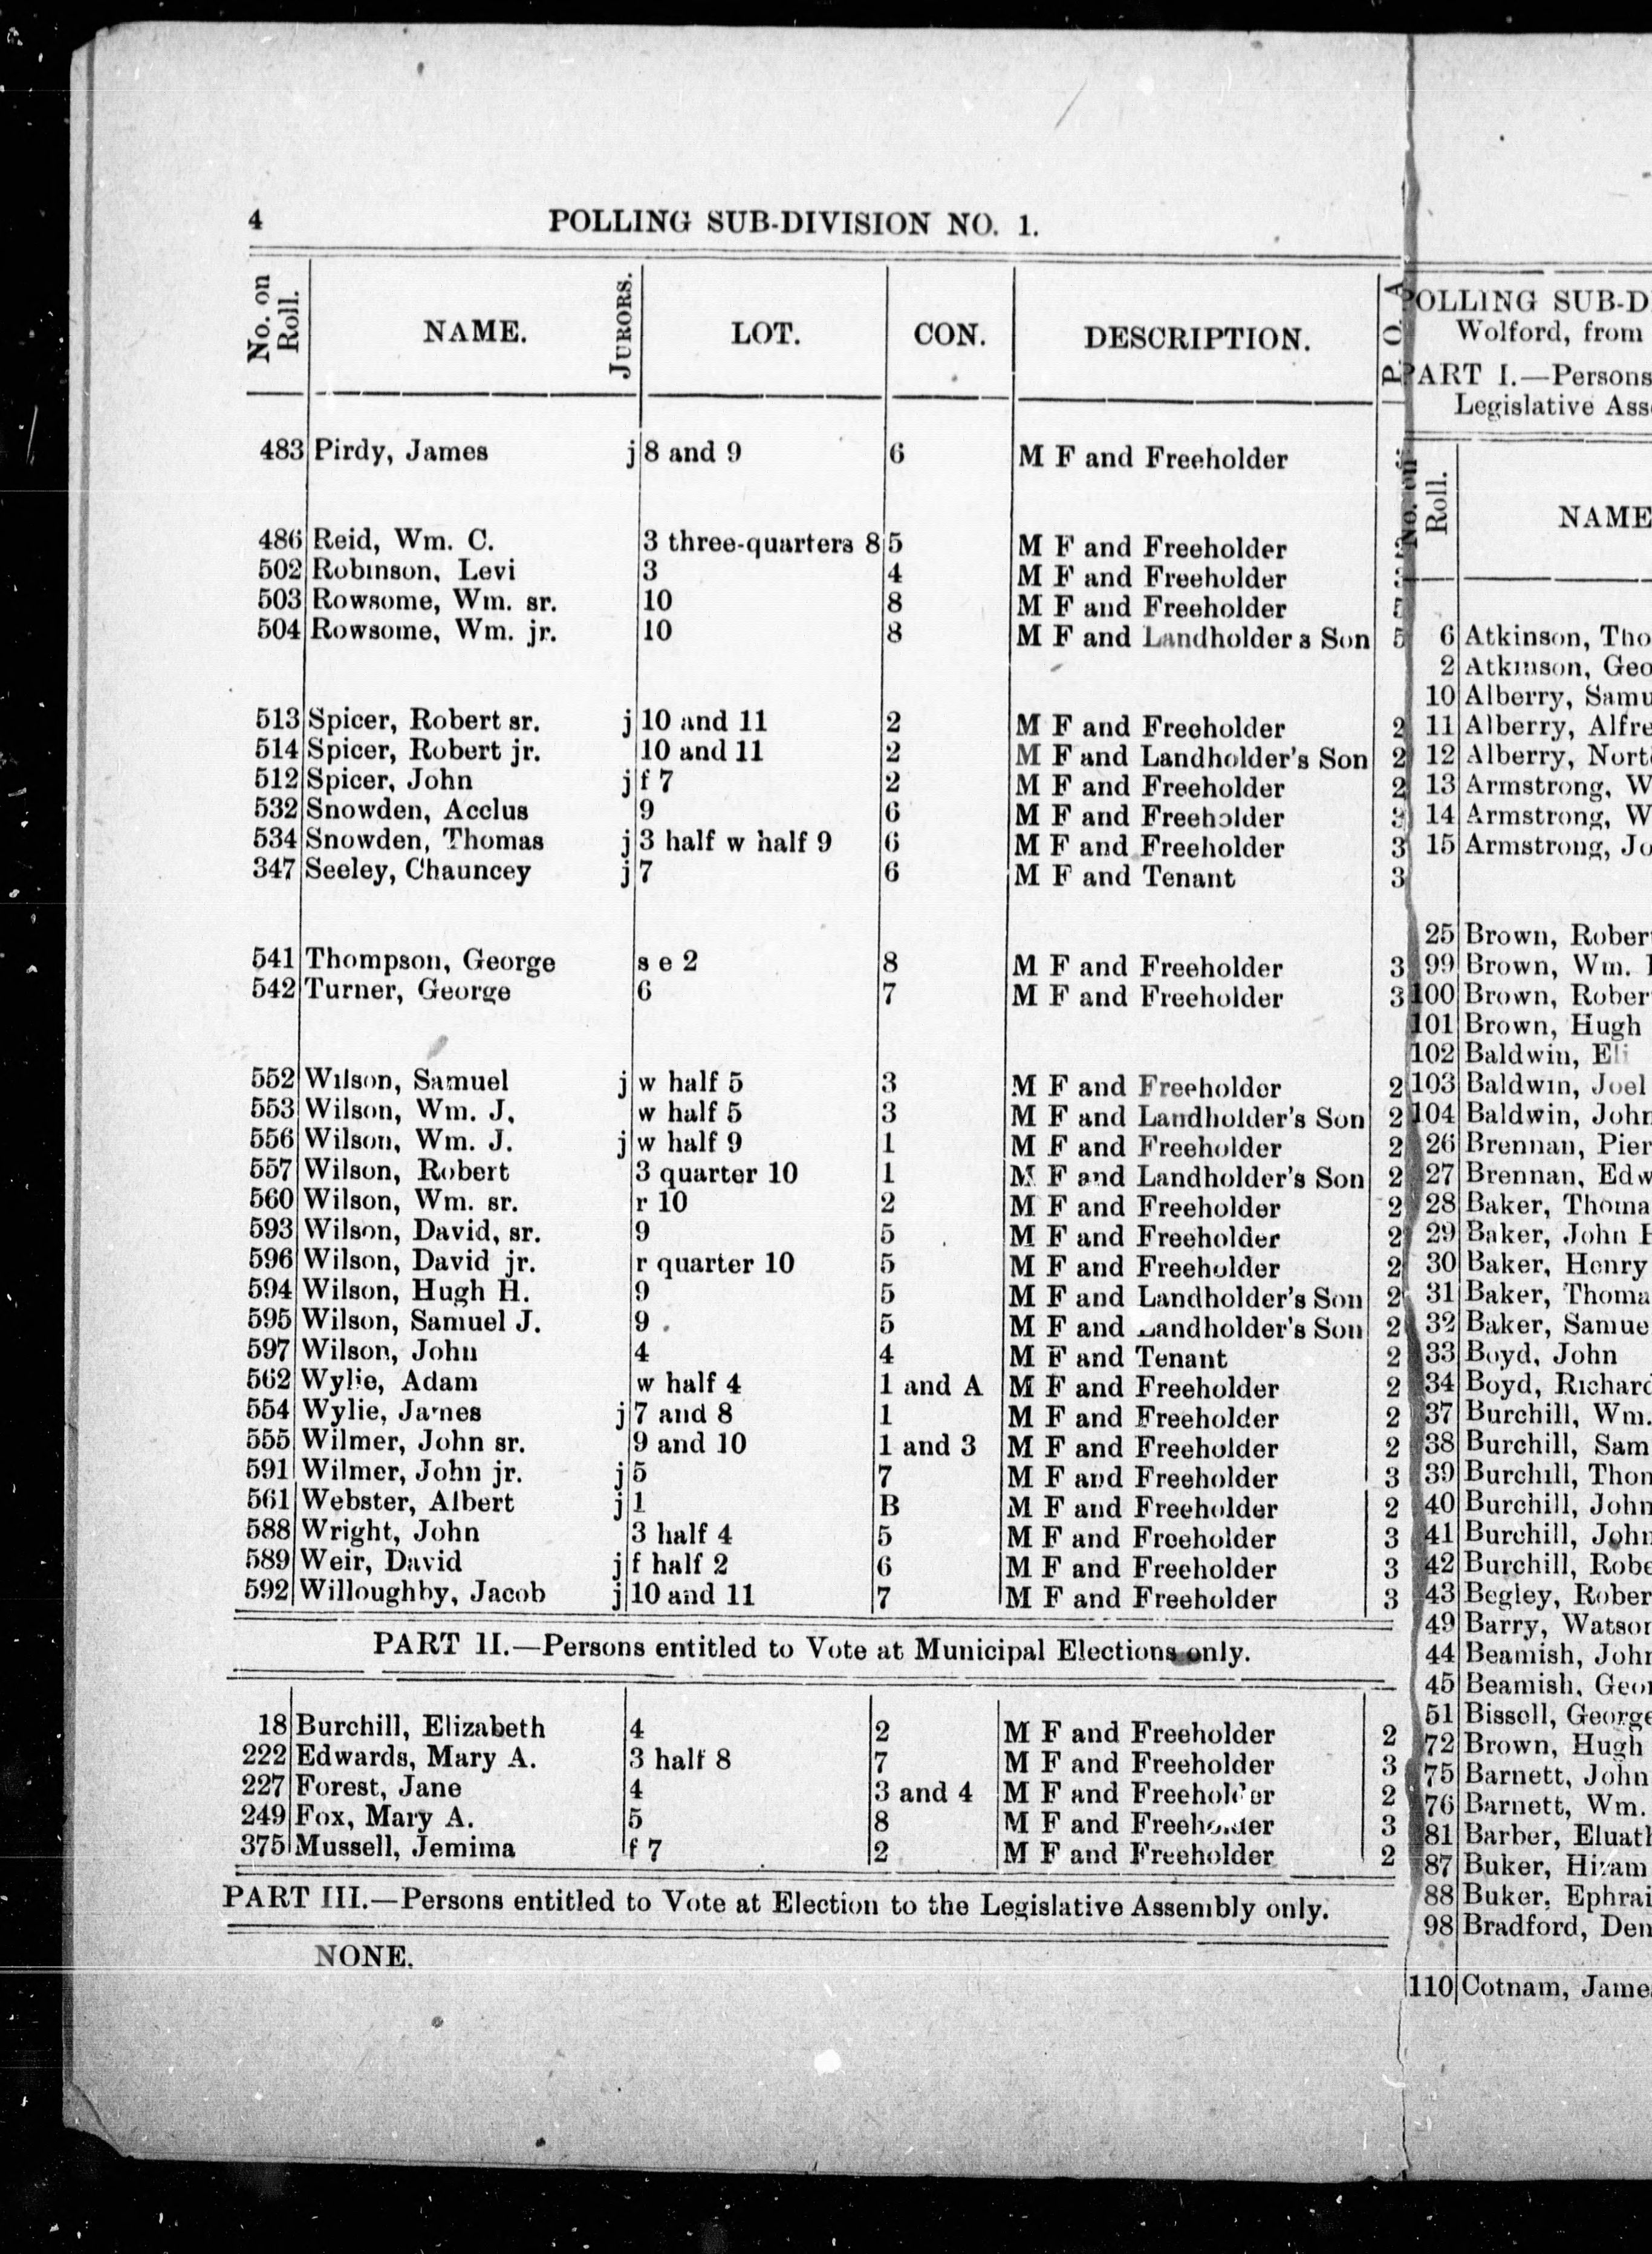 4 POLLING SUB-DIVISION NO. 1.
No. on Roll. NAME. JURORS. LOT. CON. DESCRIPTION. P. O. A
483 Pirdy, James j 8 and 9 6 M F and Freeholder
486 Reid, Wm. C. 3 three-quarters 8 5 M F and Freeholder
502 Robinson, Levi 3 4 M F and Freeholder
503 Rowsome, Wm. sr. 10 8 M F and Freeholder 5
504 Rowsome, Wm. jr. 10 8 M F and Landholder s Son 5
513 Spicer, Robert sr. j 10 and 11 2 M F and Freeholder 2
514 Spicer, Robert jr. 10 and 11 2 M F and Landholder's Son 2
512 Spicer, John j f 7 2 M F and Freeholder 2
532 Snowden, Acclus 9 6 M F and Freeholder 3
534 Snowden, Thomas j 3 half w half 9 6 M F and Freeholder 3
347 Seeley, Chauncey j 7 6 M F and Tenant 3
541 Thompson, George s e 2 8 M F and Freeholder 3
542 Turner, George 6 7 M F and Freeholder 3
552 Wilson, Samuel j w half 5 3 M F and Freeholder 2
553 Wilson, Wm. J. w half 5 3 M F and Landholder's Son 2
556 Wilson, Wm. J. j w half 9 1 M F and Freeholder 2
557 Wilson, Robert 3 quarter 10 1 M F and Landholder's Son 2
560 Wilson, Wm. sr. r 10 2 M F and Freeholder 2
593 Wilson, David, sr. 9 5 M F and Freeholder 2
596 Wilson, David jr. r quarter 10 5 M F and Freeholder 2
594 Wilson, Hugh H. 9 5 M F and Landholder's Son 2
595 Wilson, Samuel J. 9 5 M F and Landholder's Son 2
597 Wilson, John 4 4 M F and Tenant 2
562 Wylie, Adam w half 4 1 and A M F and Freeholder 2
554 Wylie, James j 7 and 8 1 M F and Freeholder 2
555 Wilmer, John sr. 9 and 10 1 and 3 M F and Freeholder 2
591 Wilmer, John jr. j 5 7 M F and Freeholder 3
561 Webster, Albert j 1 B M F and Freeholder 2
588 Wright, John 3 half 4 5 M F and Freeholder 3
589 Weir, David j f half 2 6 M F and Freeholder 3
592 Willoughby, Jacob j 10 and 11 7 M F and Freeholder 3
PART II.—Persons entitled to Vote at Municipal Elections only.
18 Burchill, Elizabeth 4 2 M F and Freeholder 2
222 Edwards, Mary A. 3 half 8 7 M F and Freeholder 3
227 Forest, Jane 4 3 and 4 M F and Freeholder 2
249 Fox, Mary A. 5 8 M F and Freeholder 3
375 Mussell, Jemima f 7 2 M F and Freeholder 2
PART III.—Persons entitled to Vote at Election to the Legislative Assembly only.
NONE.
POLLING SUB-D
Wolford, from
PART I.—Persons
Legislative Ass
No. on Roll. NAME
6 Atkinson, Tho
2 Atkinson, Geo
10 Alberry, Samu
11 Alberry, Alfre
12 Alberry, Nort
13 Armstrong, W
14 Armstrong, W
15 Armstrong, Jo
25 Brown, Rober
99 Brown, Wm.
100 Brown, Rober
101 Brown, Hugh
102 Baldwin, Eli
103 Baldwin, Joel
104 Baldwin, John
26 Brennan, Pier
27 Brennan, Edw
28 Baker, Thoma
29 Baker, John
30 Baker, Henry
31 Baker, Thoma
32 Baker, Samue
33 Boyd, John
34 Boyd, Richard
37 Burchill, Wm.
38 Burchill, Sam
39 Burchill, Thom
40 Burchill, John
41 Burchill, John
42 Burchill, Robe
43 Begley, Rober
49 Barry, Watson
44 Beamish, John
45 Beamish, Geor
51 Bissell, George
72 Brown, Hugh
75 Barnett, John
76 Barnett, Wm.
81 Barber, Eluath
87 Buker, Hiram
88 Buker, Ephrai
98 Bradford, Den
110 Cotnam, Jame